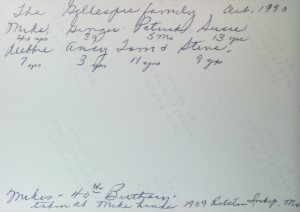 The Gillespie family Oct. 1990
Mike, Ginger, Patrick, Susie
40 yrs 39 5 mo 13 yrs
Debbie Andy Tom & Steve.
7 yrs 3 yrs 11 yrs 9 yrs
Mikes - 40th Birthday -
taken at Mike 1909 Ralston Indep, Mo